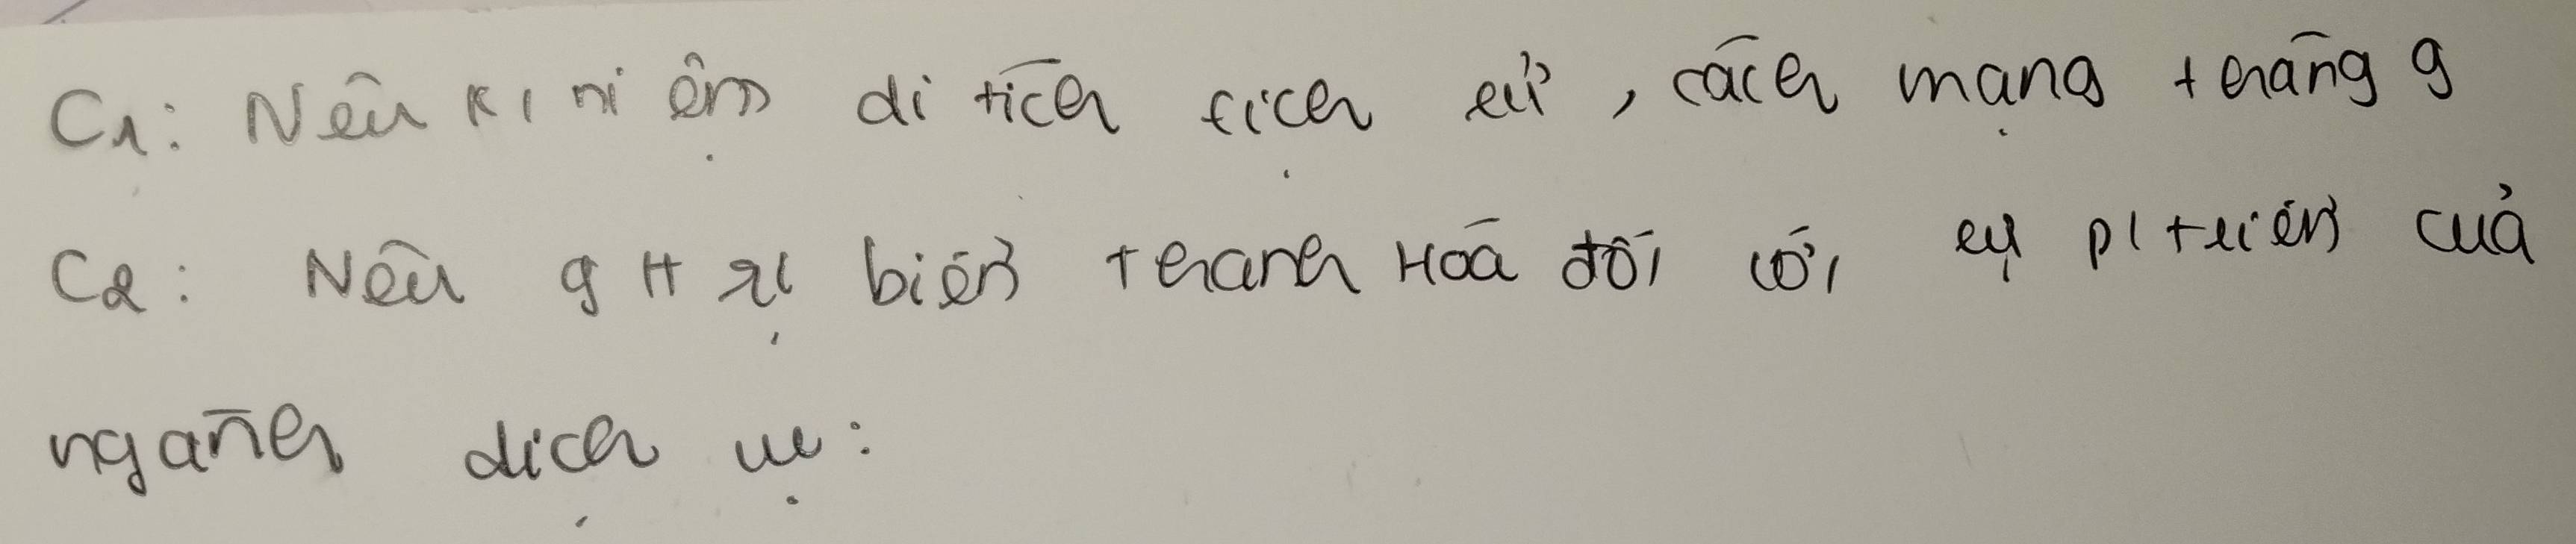 C1: Nêu kỉ niệm di tích lịch sử, cách mạng tháng 9
C2: Nêu biển Thanh Hóa đối với sự pt triển của
ngành dịch vụ: